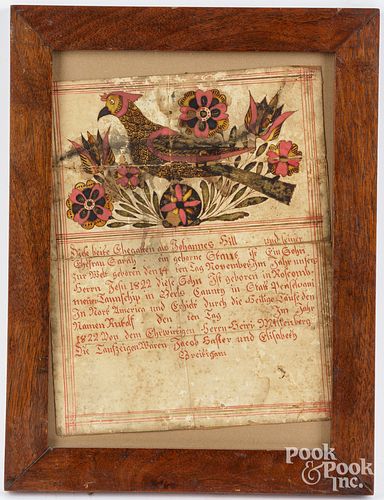 Diese beite Ehegatten als Johannes Hill und seiner
Ehefrau Sarah ein geborne Staus ist Ein Sohn
zur Welt geboren den 14 ten Tag November im Jahr unsers
Herrn Jesu 1822 diese Sohn Ist geboren in
Taunschip in Berks Caunty im Staat
In Nort America und Erhielt durch die Heilige Taufe den
Namen den ten Tag Im Jahr
1822 Von dem Ehrwürtigen Herrn Henri
Die Taufzeigen Waren Jacob Haster und Elisabeth
POOK
& POOK
Inc.